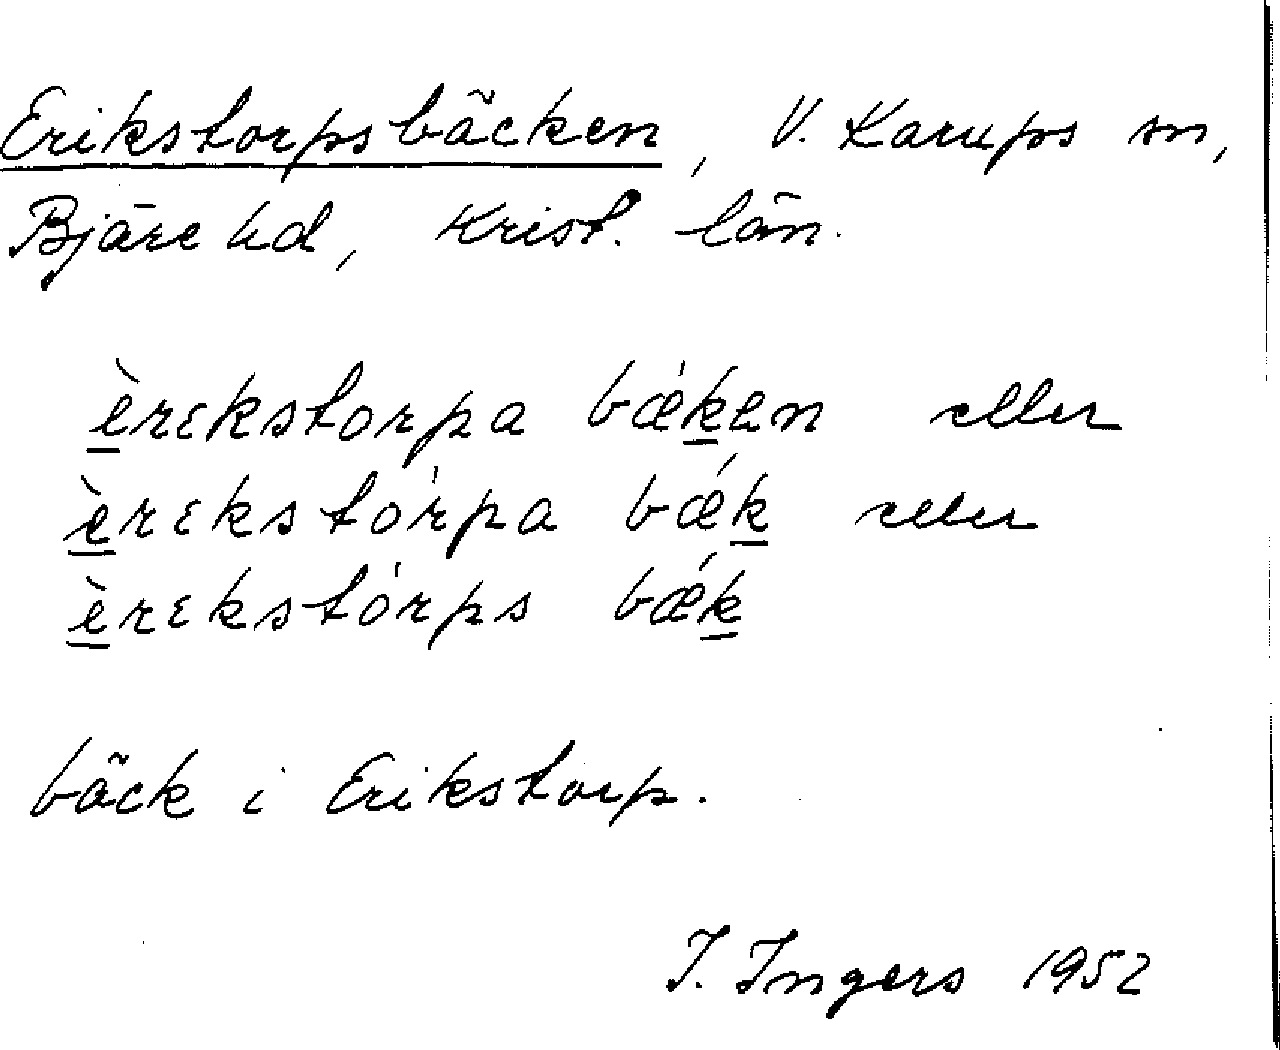 Erikstorpsbäcken, V. Karups sn,
Bjäre hd, Krist. län.
è̱rɛkstorpa bæ̍ḵen eller
è̱rɛksto̍rpa bǽḵ eller
è̱rɛksto̍rps bǽḵ
bäck i Erikstorp.
I. Ingers 1952